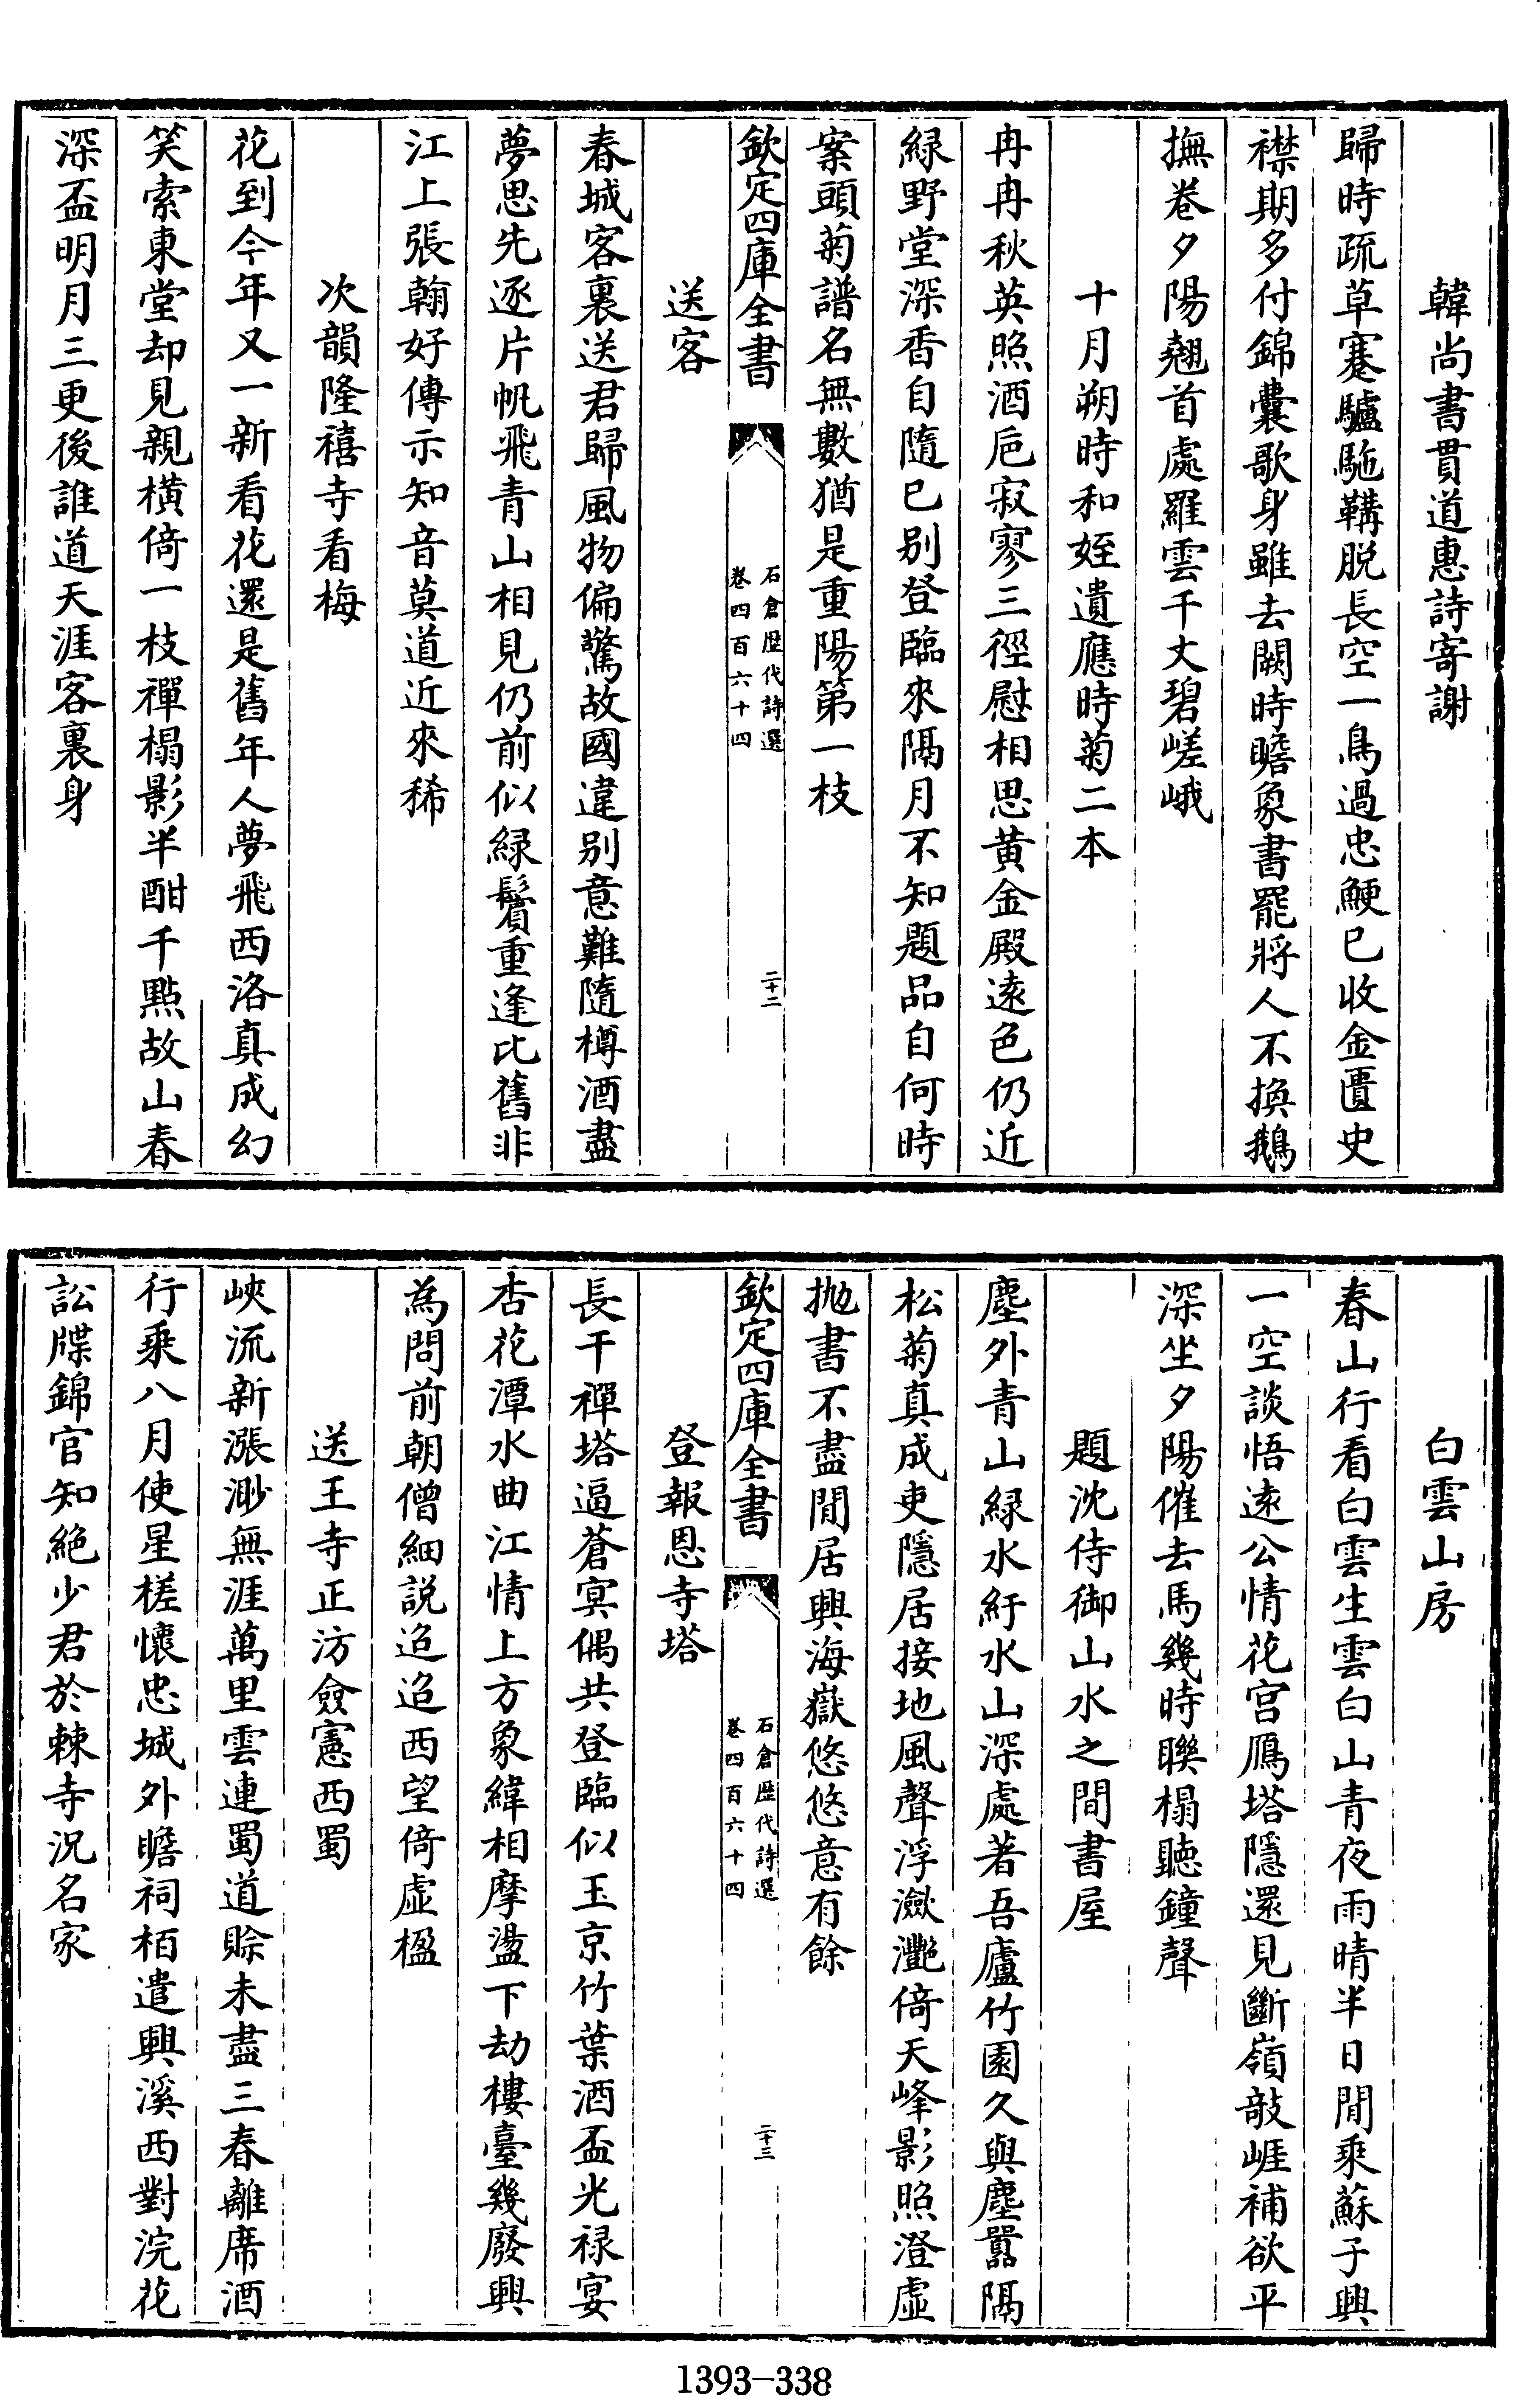 韓尚書貫道惠詩寄謝
歸時疏草蹇驢馳鞲脱長空一鳥過忠鯁已收金匱史
襟期多付錦囊歌身雖去闕時瞻象書罷將人不換鵝
撫卷夕陽翹首處羅雲千丈碧嵯峨
十月朔時和姪遺應時菊二本
冉冉秋英照酒巵寂寥三徑慰相思黄金殿遠色仍近
緑野堂深香自隨已别登臨來隔月不知題品自何時
案頭菊譜名無數猶是重陽第一枝
欽定四庫全書
石倉歴代詩選
卷四百六十四
二十二
送客
春城客裏送君歸風物偏驚故國違别意難隨樽酒盡
夢思先逐片帆飛青山相見仍前似緑鬢重逢比舊非
江上張翰好傳示知音莫道近來稀
次韻隆禧寺看梅
花到今年又一新看花還是舊年人夢飛西洛真成幻
笑索東堂却見親横倚一枝禪榻影半酣千點故山春
深盃明月三更後誰道天涯客裏身
白雲山房
春山行看白雲生雲白山青夜雨晴半日閒乘蘇子興
一空談悟遠公情花宫鴈塔隱還見斷嶺敲崕補欲平
深坐夕陽催去馬幾時聨榻聽鐘聲
題沈侍御山水之間書屋
塵外青山緑水紆水山深處著吾廬竹園久與塵囂隔
松菊真成吏隱居接地風聲浮瀲灧倚天峰影照澄虚
抛書不盡閒居興海嶽悠悠意有餘
欽定四庫全書
石倉歴代詩選
卷四百六十四
二十三
登報恩寺塔
長干禪塔逼蒼冥偶共登臨似玉京竹葉酒盃光禄宴
杏花潭水曲江情上方象緯相摩盪下劫樓臺幾廢興
為問前朝僧細説迢迢西望倚虚楹
送王寺正汸僉憲西蜀
峽流新漲渺無涯萬里雲連蜀道賒未盡三春離席酒
行乘八月使星槎懷忠城外瞻祠栢遣興溪西對浣花
訟牒錦官知絶少君於棘寺況名家
1393-338